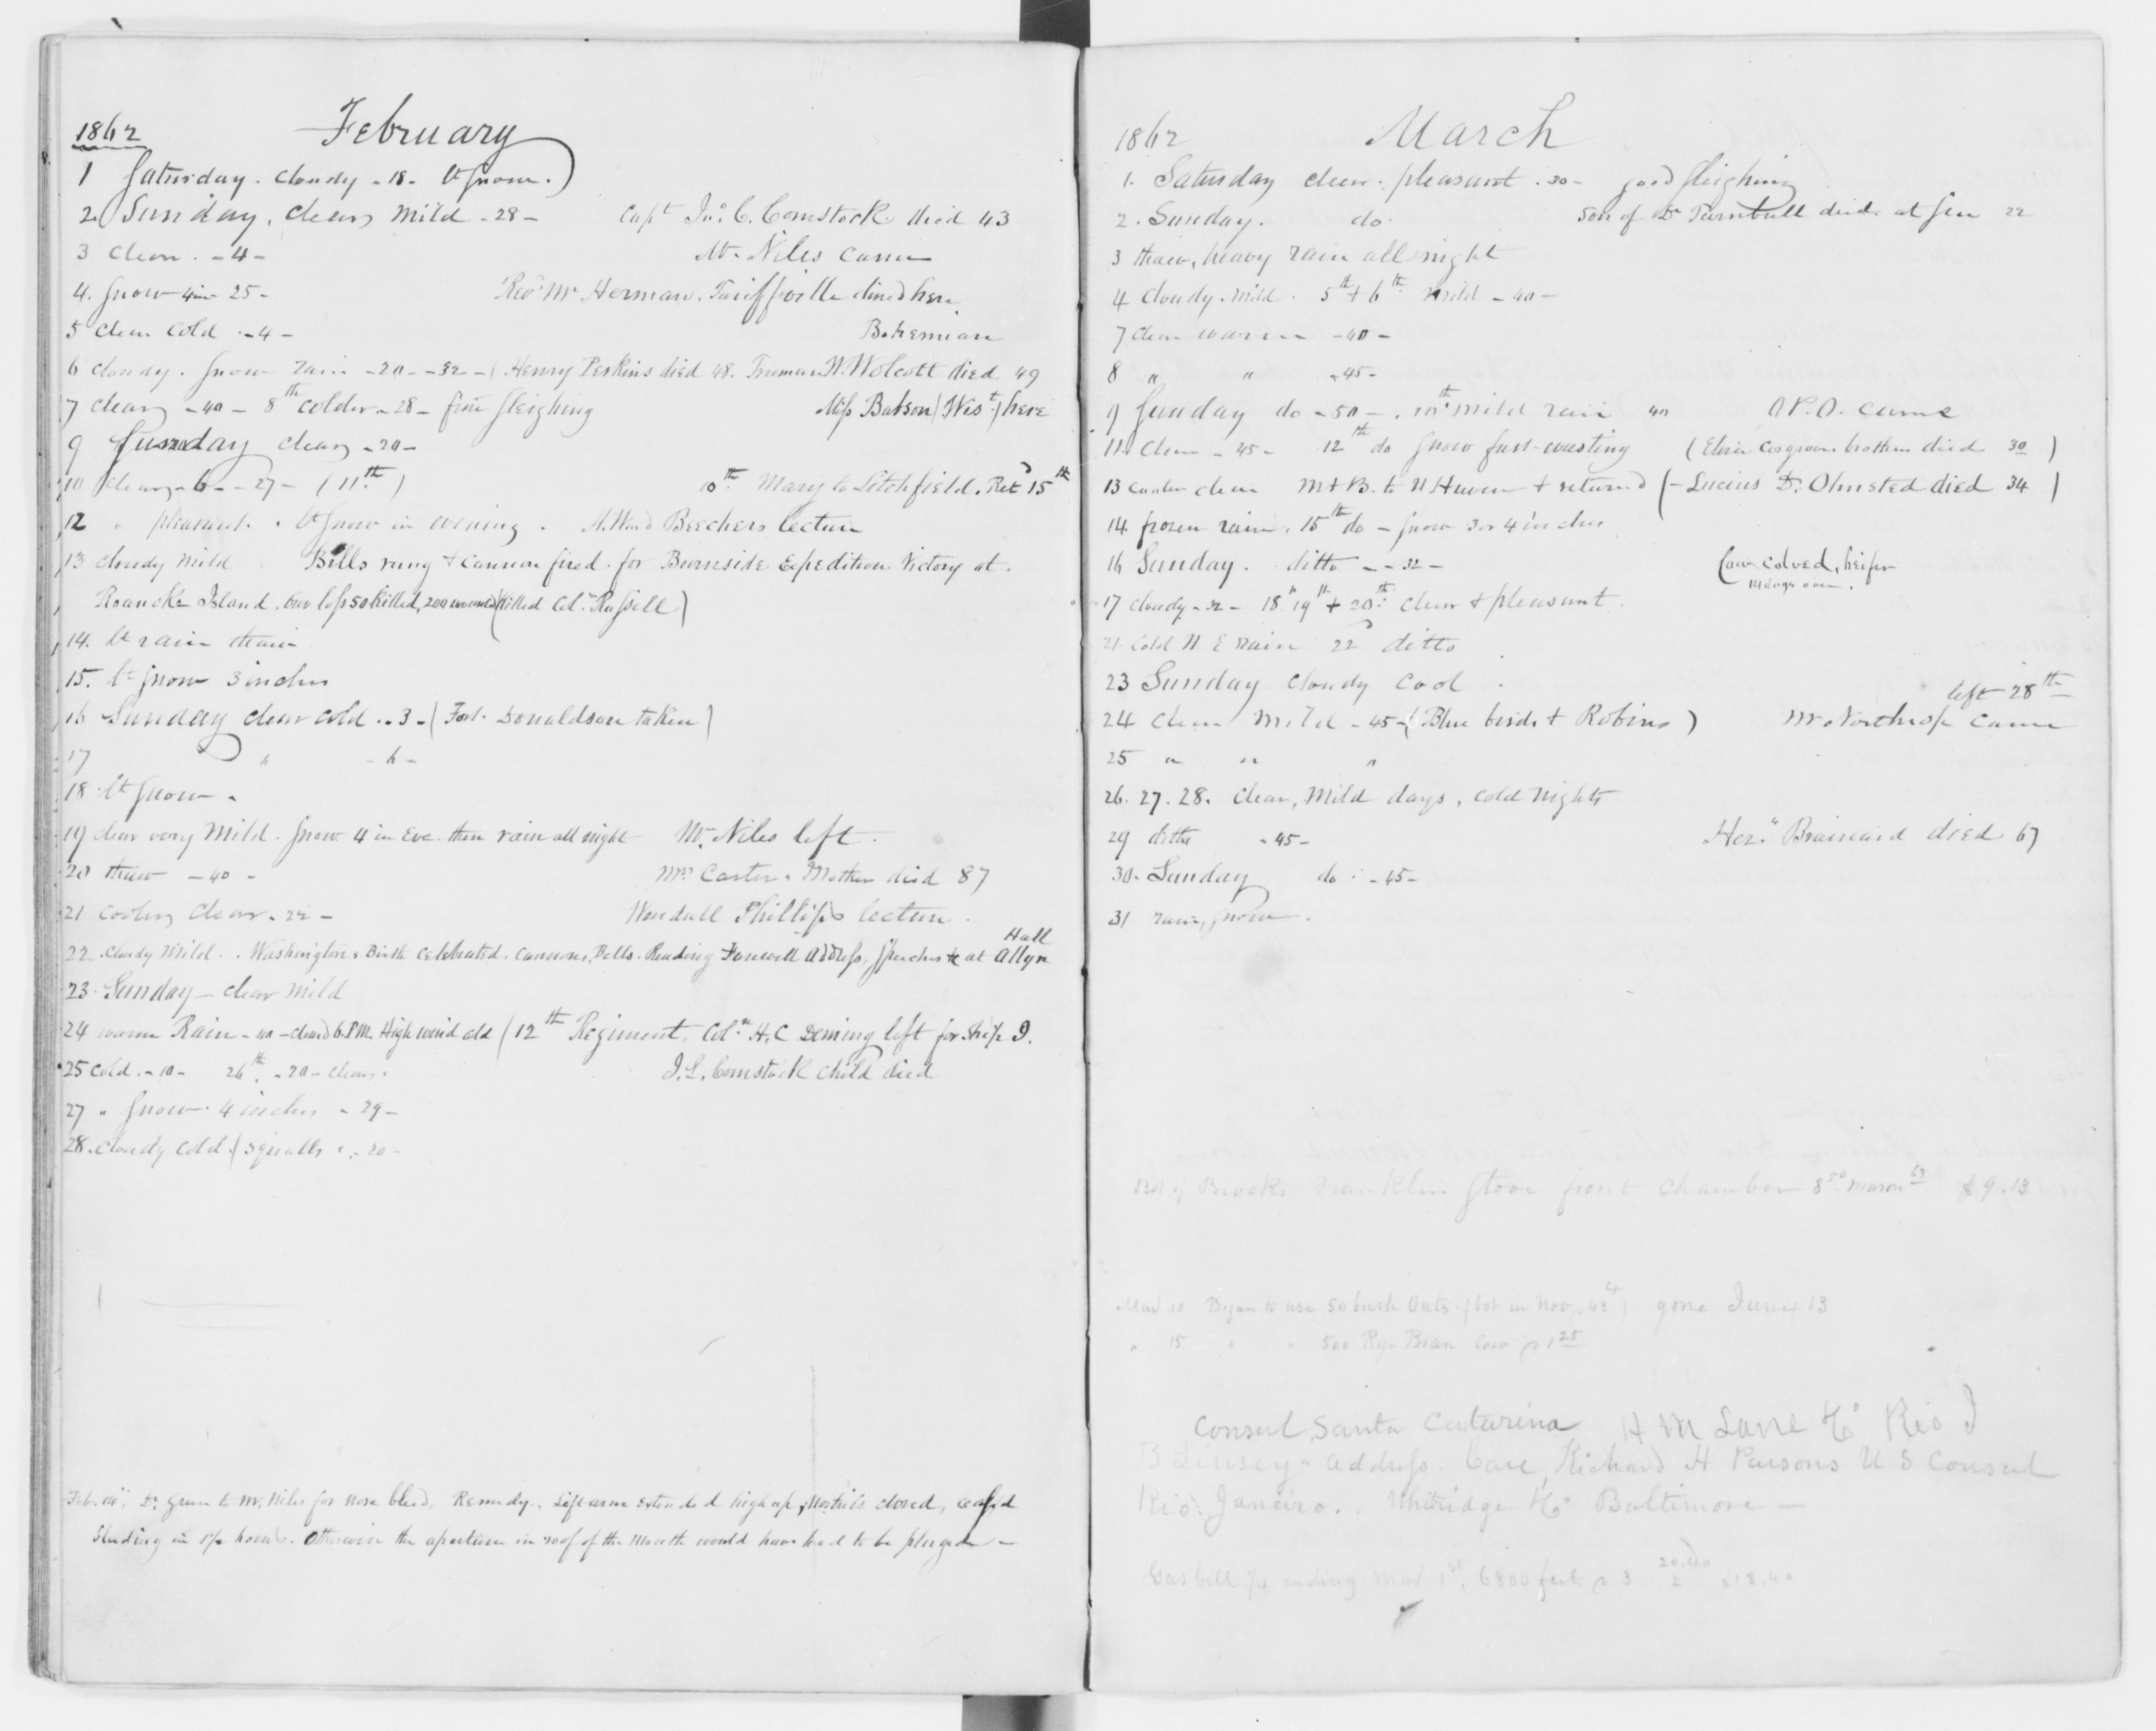 1862 February
1 Saturday. Cloudy - 18 - lt snow.
2 Sunday, clear, mild - 28 - Capt Jno. C. Comstock died 43
3 Clear. - 4 - Mr. Niles came
4. Snow 4 in 25 - Revd Mr Herman. Tariffville dined here
5 Clear Cold - 4 - Bohemian
6 cloudy. Snow rain - 20 - - 32 - ( Henry Perkins died 48. Truman H. Wolcott died 49
7 clear, - 40 - 8th colder - 28 - fine sleighing Miss Batson (Wist) here
9 Sunday clear, - 20 -
10 clear, - 6 - - 27 - (11th) 10th Mary to Litchfield. Retd 15th
12 " pleasant. lt snow in evening. H. Ward Beechers lecture
13 cloudy mild Bells rung + Cannon fired for Burnside Expedition Victory at
Roanoke Island. Our loss 50 killed, 200 wounded (killed Col. Russell)
14. lt rain thaw
15. lt snow 3 inches
16 Sunday clear cold - 3 - (Fort Donaldson taken)
17 " - 6 -
18 lt snow -
19 clear very mild. Snow 4 in Eve. then rain all night Mr. Niles left.
20 thaw - 40 - Mrs Carter's Mother died 87
21 cooler, clear - 22 - Wendull Phillips lecture.
Hall
22. Cloudy Mild. Washingtons Birth Celebrated. Cannons, Bells. Reading Farewell Address, Speeches &c at Allyn
23. Sunday - clear mild
24 warm Rain - 40 - cleard 6 P.M. High wind cld (12th Regiment. Coln H, C Deming left for Ship I.
25 Cold. - 10 - 26th. - 20 - clear. J. L. Comstock child died
27 " Snow 4 inches - 29 -
28. Cloudy Cold. (Squalls - 20 -
Dr. Green to Mr. Niles for Nose bleed, Remedy. Left arm extended high up, Nostrils closed, ceased
bleeding in 1/2 hour. Otherwise the aperture in roof of the Mouth would have had to be pluged -
1862 March
1. Saturday clear. pleasant. 30 - good sleighing
2. Sunday. do. Son of Dr Turnbull died at sea 22
3 thaw, heavy rain all night
4 Cloudy. Mild. 5th + 6th Mild - 40 -
7 clear warm - 40 -
8 " " - 45 -
9 Sunday do - 50 -. 10th mild rain 40 came
11. Clear - 45 - 12th do Snow fast wasting ( Cosgrove brother died 30 )
13 Cooler clear M + B. to N Haven + returned (- Lucius D. Olmsted died 34 )
14 frozen rain. 15th do - Snow 3 or 4 inches
16 Sunday. ditto - - 32 - Cow calved, heifer
14 days over.
17 cloudy - 32 - 18" 19th + 20th clear + pleasant.
21. Cold N. E rain 22d ditto
23 Sunday cloudy Cool.
left 28th
24 Clear Mild - 45 - (Blue birds + Robins) Mr Northrop came
25 " " "
26. 27. 28. Clear, Mild days, cold nights
29 ditto - 45 - Hez. Brainard died 67
30. Sunday do. - 45 -
31 rain, snow.
Bot of Brooks Franklin Stove front Chamber 8 50 mason 63 $9.13
Mar 10 Began to use 50 bush Oats (bot in Nov, 43 ct) gone June 13
" 15 " " 500 Rye Bran Cow 1 25
Consul Santa Catarina H M Lane &Co Rio J
B Linsey's address. Care, Richard H Parsons U S Consul
Rio Janeiro. Whitridge &Co Baltimore -
Gas bill 1/4 ending Mar 1st, 6800 feet 3 20.40 2 18.40